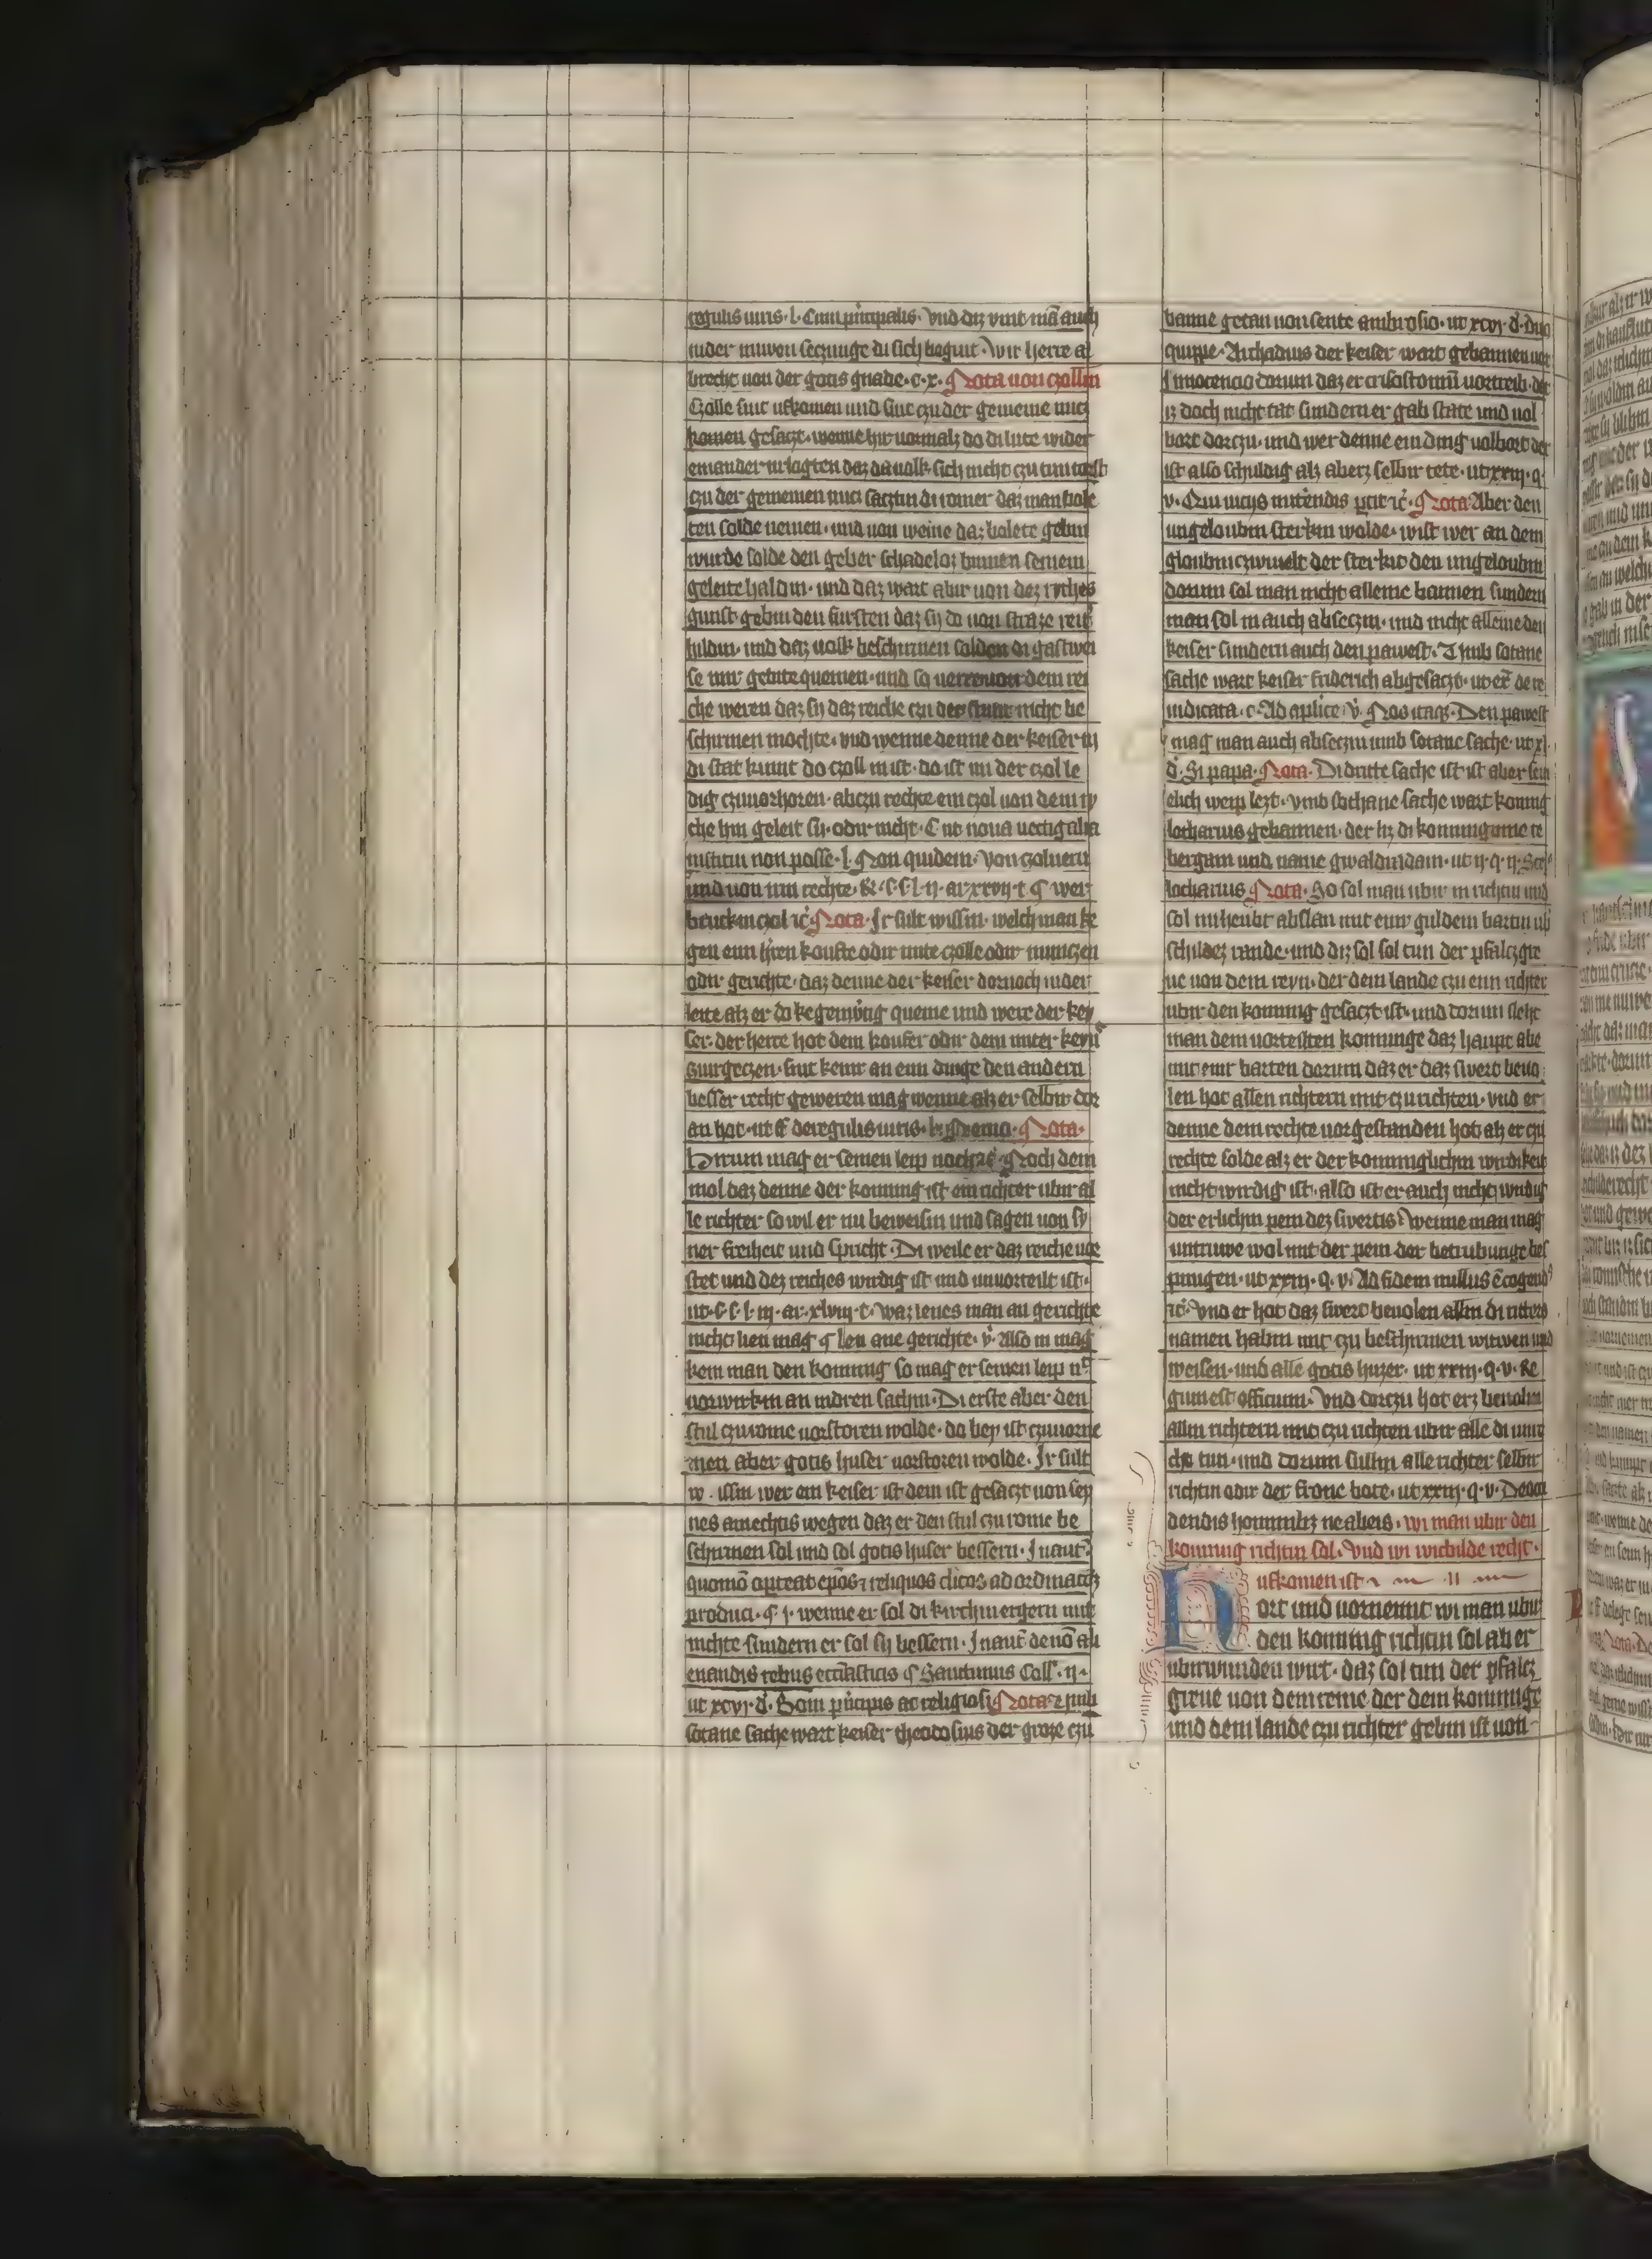 regulis iuris · l · Cum principalis · Vnd diz vint mā auch
inder nuwen seczunge di sich begint · Wir herre al
brecht von der gotis gnade · c · x · Nota von czollin
Czolle sint ufkomen und sint czu der gemeine nucz
komen gesaczt · wenne hir vormalz do di lute wider
einander urlogten daz da volk sich nicht czu tun
czu der gemeinen nucz saczten di romer daz man bole
ten solde nemen · und von weme daz bolete gebin
wurde solde den geber schadeloz binnen seinem
geleite haldin · und daz wart abir von dez ryches
gunst gebin den fursten daz sy do von straze rein
hildin · und daz volk beschirmen solden di gastwei
se inir gebite quemen · und so verre von dem rei
che weren daz sy daz reiche czu der stunt nicht be
schirmen mochte · vnd wenne denne der keiser in
di stat kumt do czoll in ist · do ist im der czol le
dig czuuorhoren · abczu rechte ein czol von dem ry
che hin geleit sy · odir nicht · C ut noua uectigalia
institui non posse · l · Non quidem · Von czolnern
und von irm rechte · & · s · s · l · ij · ar xxvij · t q wer
brucken czol ic Nota · Ir sult wissin · welch man ke
gen eyn hren koufte odir mite czolle odir munczen
odir gerichte · daz denne der keiser dornoch nider
leite alz er do kegenwtig queme und were der key
ser · der herre hot dem koufer odir dem miter keyn
guirgeczen · sint keinr an eyn dinge den andern
besser recht geweren mag wenne alz er selbir dor
an hot · ut ff de regulis iuris · l · Nemo · Nota ·
Dorum mag er seinen leip Noch dem
mol daz denne der konning ist ein richter ubir al
le richter so wil er nu beweisin und sagen von sy
ner freiheit und spricht · Di weile er daz reiche uor
stet und dez reiches wirdig ist und unuorteilt ist ·
ut · s · s · l · iij · ar · xlviij · c · Waz ienes man an gerichte
nicht lien mag q len ane gerichte · v · Also in mag
kein man den konning so mag er seinen leip
vorwirkin an indren sachin · Di erste aber den
stul czu rome uorstoren wolde · do bey ist czuuorne
men aber gotis huser uorstoren wolde · Ir sult
w issin wer ein keiser ist dem ist gesaczt von sey
nes amechtis wegen daz er den stul czu rome be
schirmen sol und sol gotis huser bessern · In aut
quomo oporteat epos et reliquos clicos ad ordinacōz
produci · q · j · wenne er sol di kirchin ergern mit
nichte sundern er sol sy bessern · In aut de no ali
enandis rebus ecclasticis q Sanctimus Coll · ij ·
ut xcvj · d · Boni principis ac religiosi Nota umb
sotane sache wart keiser theodosius der groze czu
banne getan von sente ambrosio · ut xcvj · d · Duo
quippe · Archadius der keiser wart gebannen uor
Innocencio dorum daz er crisostomū uortreib · der
iz doch nicht tat sundern er gab state und uol
bort dorczu · und wer denne ein ding uolbort der
ist also schuldig alz aberz selbir tete · ut xxiij · q ·
v · Nota Aber den
ungeloubin sterkin wolde · wist wer an dem
gloubin czwiuelt der sterkit den ungeloubin
dorum sol man nicht alleine bannen sundern
man sol in auch abseczin · und nicht alleine den
keiser sundern auch den pawest · Vmb sotane
sache wart keiser friderich abgesaczt · ut de re
iudicata · c · Ad aplice · v · Nos itaq · Den pawest
mag man auch abseczin umb sotane sache · ut xl ·
d · Si papa · Nota · Di dritte sache ist ist aber sein
elich weip lezt · vmb sothane sache wart konnig
lotharius gebannen · der liz di konniginne te
bergam und name gwaldradam · ut ij · q · ij ·
lotharius Nota · So sol man ubir in richtin und
sol im heubt abslan mit einr guldein bartin ub
schildez rande · und diz sol sol tun der pfalczgre
ue von dem reyn · der dem lande czu eyn richter
ubir den konning gesaczt ist · und dorum slehit
man dem uorteilten konninge daz haupt abe
mit einr barten dorum daz er daz swert beuo
len hot allen richtern mit czu richten · vnd er
denne dem rechte uorgestanden hot alz er czu
rechte solde alz er der konniglichin wirdikeit
nicht wirdig ist · also ist er auch nicht wirdig
der erlichin pein dez swertis · Wenne man mag
untruwe wol mit der pein der betrubunge bes
pringen · ut xxiij · q · v · Ad fidem nullus e cogend
ic · Vnd er hot daz swert beuolen allin di ritters
namen habin mit czu beschirmen witwen und
weisen · und alle gotis huzer · ut xxiij · q · v · Re
gum est officium · Vnd dorczu hot erz beuolin
allin richtern mit czu richten ubir alle di unre
cht tun · und dorum sullin alle richter selbir
richtin odir der frone bote · ut xxiij · q · v · De occi
dendis hominibz · wi man ubir den
konning richtin sol · Vnd wi wicbilde recht ·
ufkomen ist
Hort und uornemt wi man ubir
den konning richtin sol ab er
ubirwunden wirt · daz sol tun der pfalcz
greue von dem reine der dem konninge
und dem lande czu richter gebin ist von